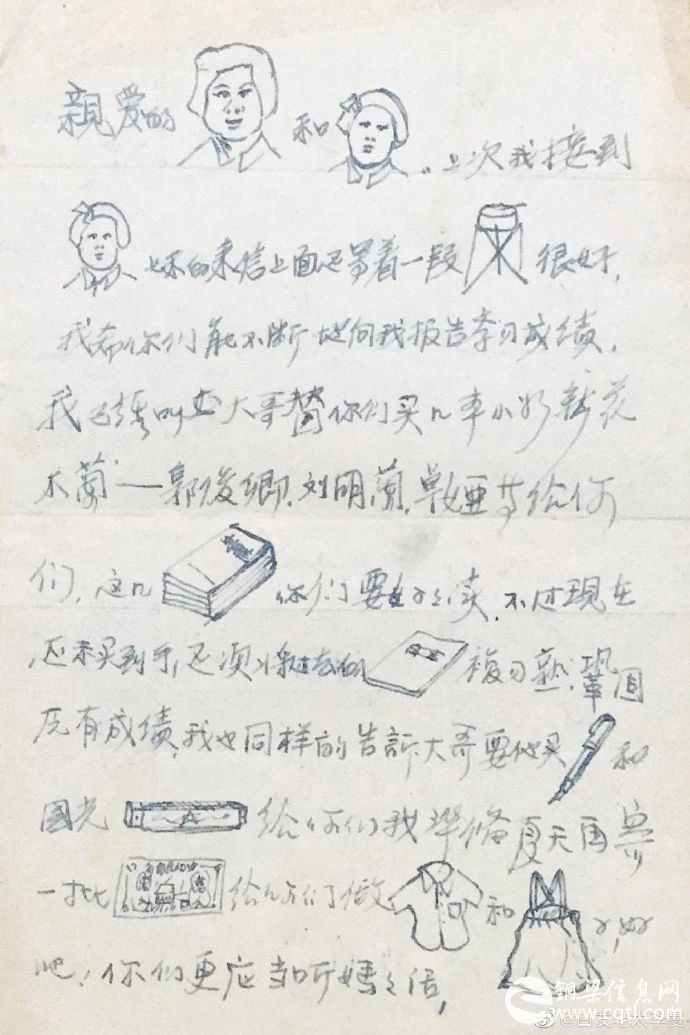 親爱的 和 。上次我接到
妹的来信上面还写着一段 很好，
我希你们能不断地向我报告学习成绩。
我已经叫 大哥替你们买几本小 花
木蘭—郭俊卿、刘明蘭、 等给你
们，这几 你们要好々读，不过现在
还未买到手，还须将过去的 複习熟，巩固
原有成绩，我也同样的告訴大哥要他买 和
国光 给你们我準备夏天再寄
一批 给你们做 和 ，好
吧！你们更应当听媽々话，
铜梁信息网
www.cqtl.com